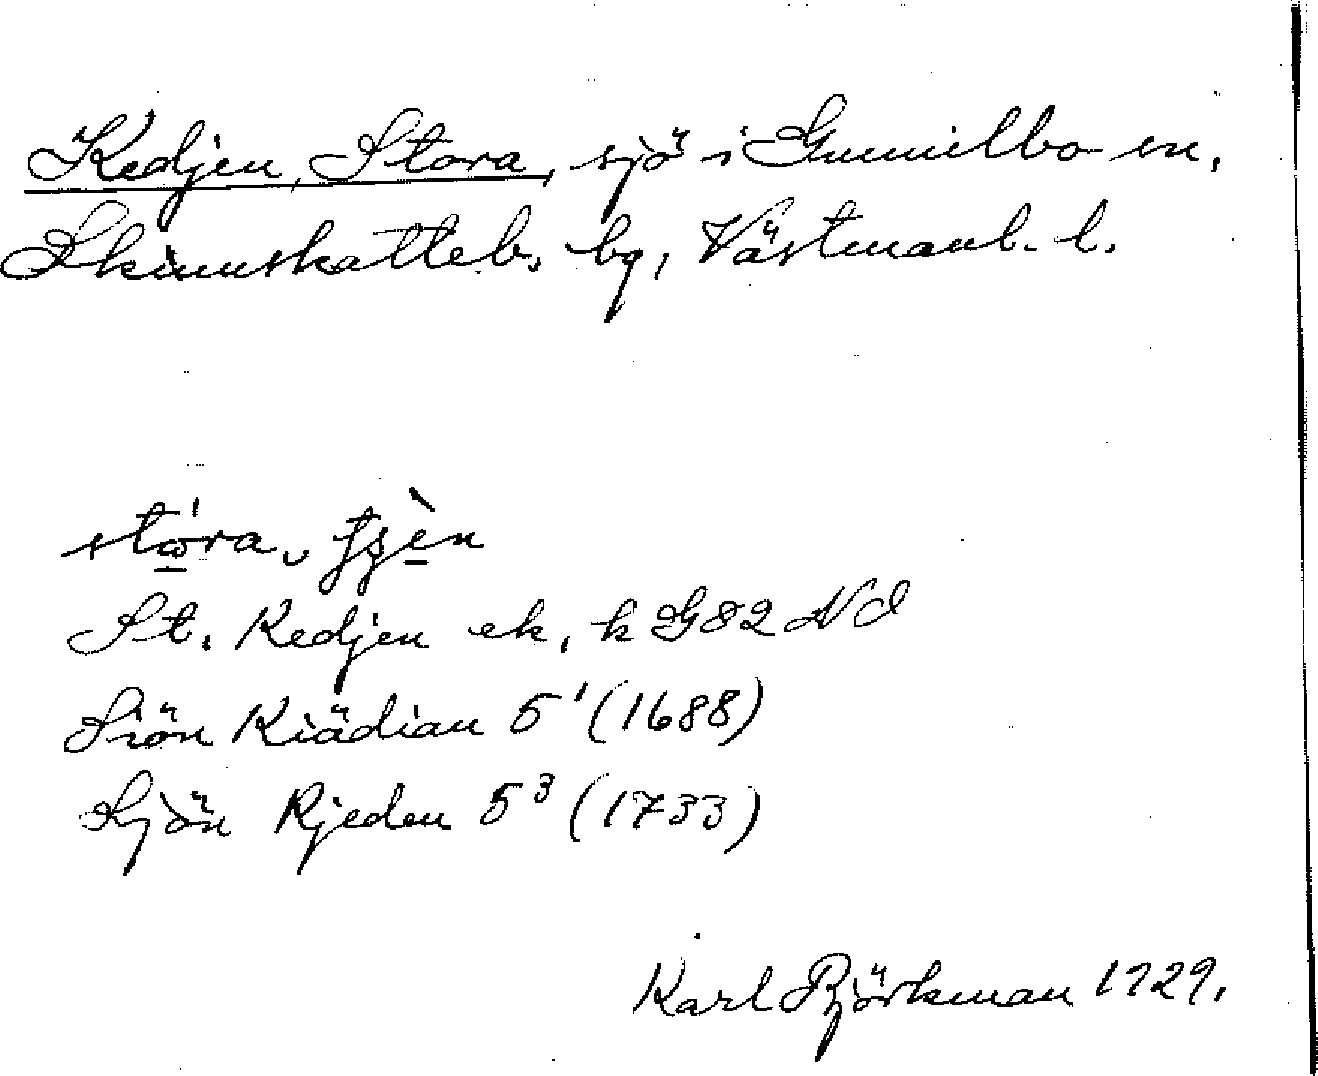 Kedjen, Stora, sjö i Gunnilbo sn,
Skinnskatteb. bg, Västmanl. l.
stó̱ra, 
St. Kedjen ek, k G82 NO
Siön Kiädian 5¹ (1688)
Sjön Kjeden 5³ (1733)
Karl Björkman 1929.